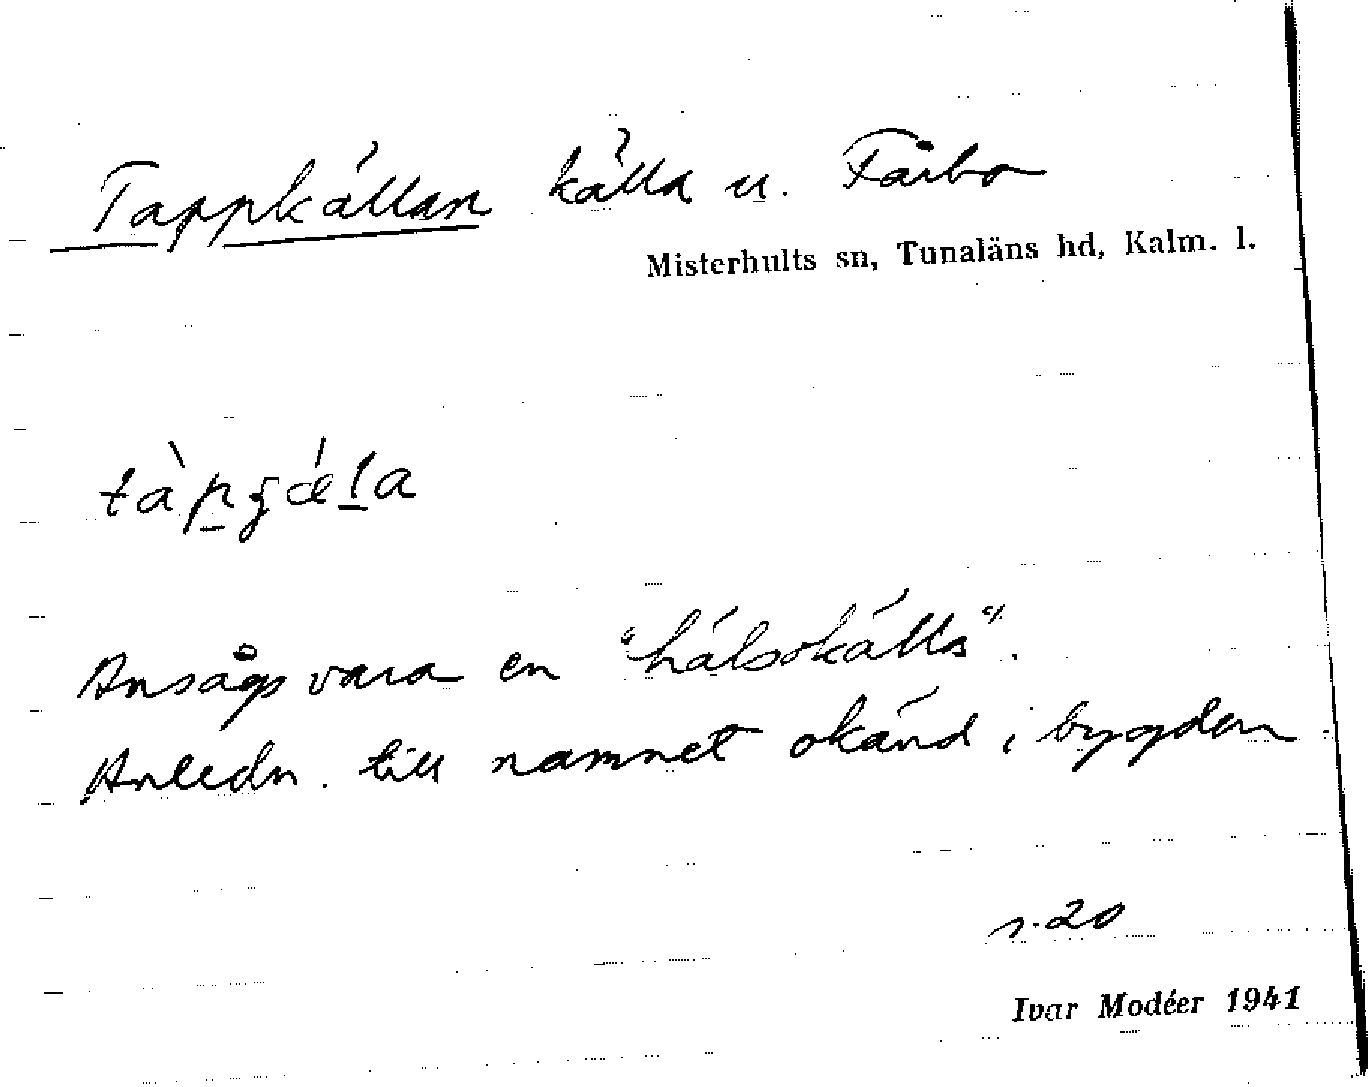 Tappkällan källa u. Fårbo
Misterhults sn, Tunaläns hd, Kalm. l.
tàpʒǽla
Ansågs vara en "hälsokälla".
Anledn. till namnet okänd i bygden.
s. 20
Ivar Modéer 1941